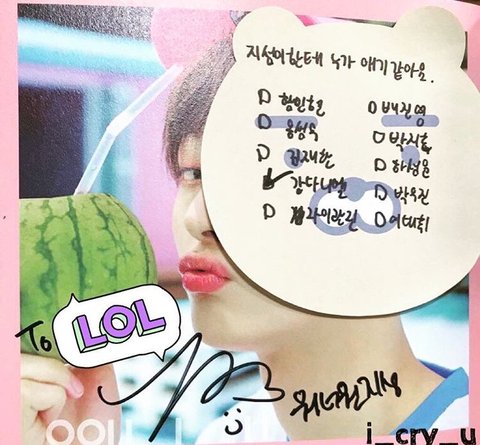 지성이한테 누가 애기같아용.
황민현 배진영
옹성우 박지훈
김재환 하성운
강다니엘 박우진
라이관린 이대휘
To LOL
워너원지성
i_cry_u